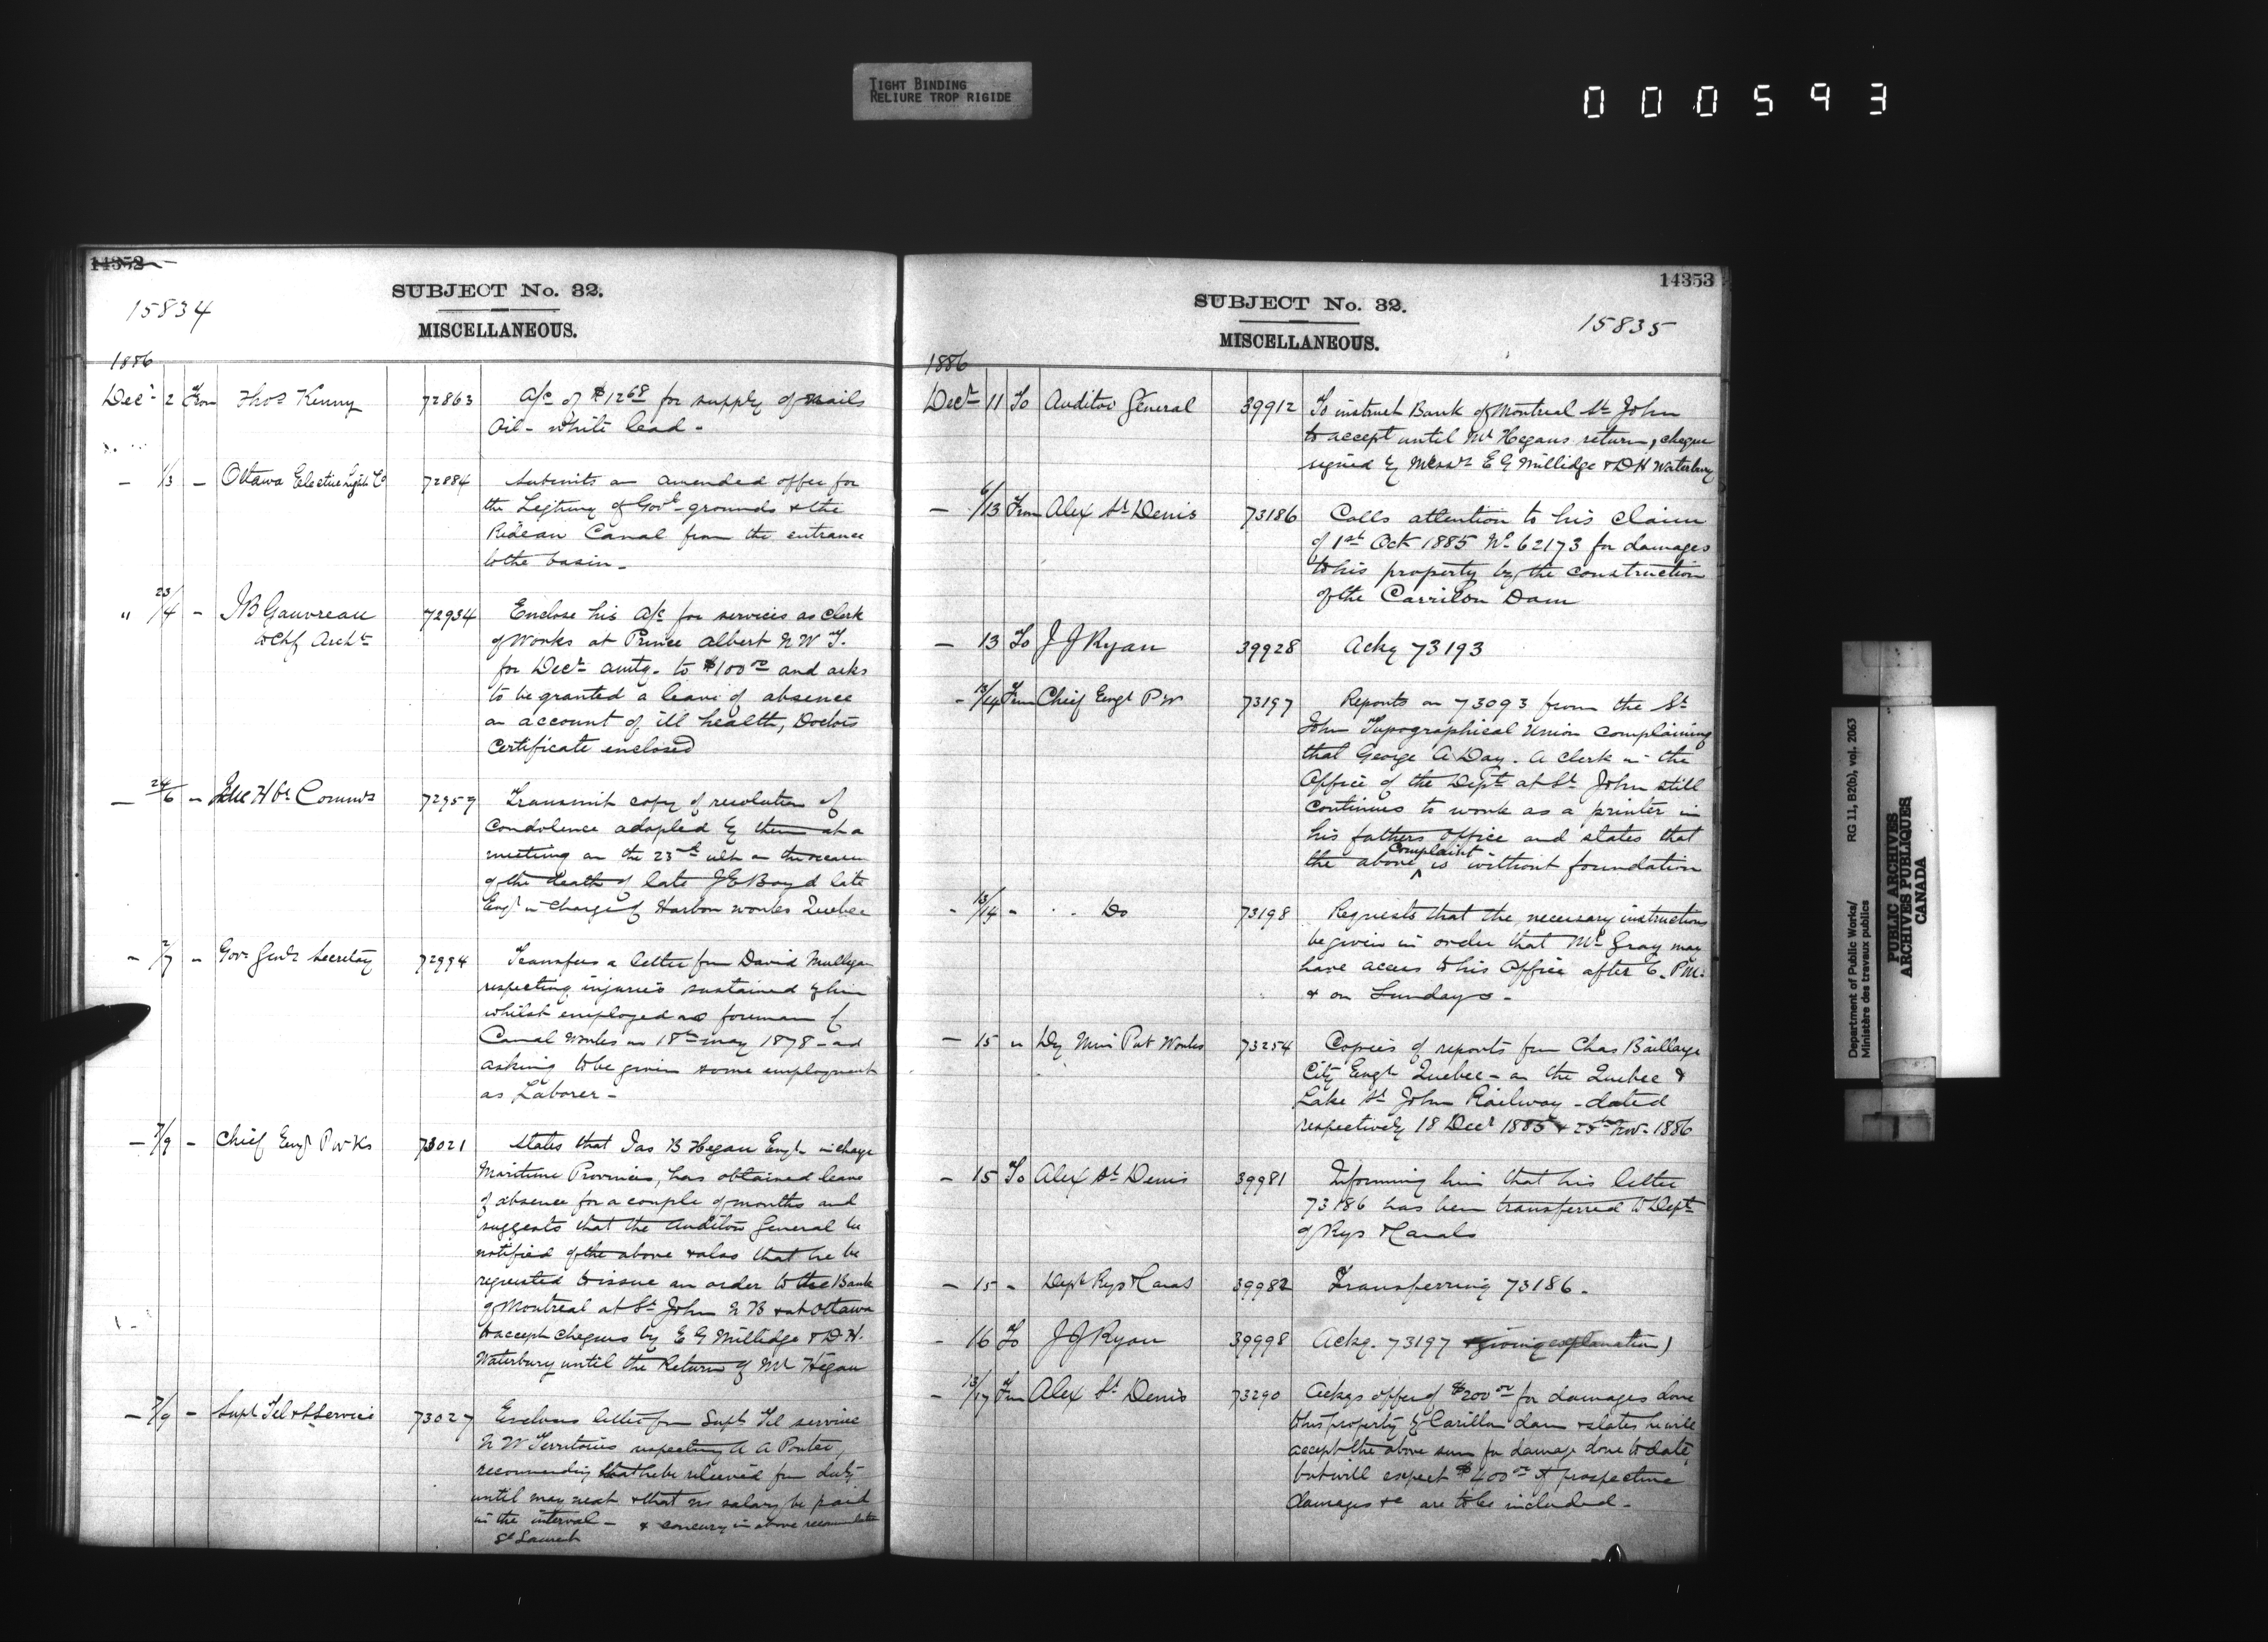 TIGHT BINDING
RELIURE TROP RIGIDE
000593
14352
15834
SUBJECT No. 32.
MISCELLANEOUS.
1886
Decr 2 From Thos Kenny 72863 A/c of $12.68 for supply of nails
Oil - white lead -
- 1/3 - Ottawa Electric Light Co 72884 Submits an amended offer for
the Lighting of Govt grounds & the
Rideau Canal from the entrance
to the basin -
" 23/4 - JB Gauvreau 72934 Enclose his A/c for services as Clerk
to Chf Archt of Works at Prince Albert N W T.
for Decr amtg. to $100.00 and asks
to be granted a leave of absence
on account of ill health, Doctors
Certificate enclosed
- 24/6 - Quc Hbr Commrs 72959 Transmit copy of resolution of
Condolence adopled by them at a
meeting on the 23rd ult on the occasion
of the death of late J E Boyd late
Engr in charge of Harbor works Quebec
- 2/7 - Govr Genls Secretary 72994 Transfers a letter from David Mulligan
respecting injuries sustained by him
whilst employed as foreman of
Canal Works on 18th May 1878 - and
asking to be given some employment
as Laborer -
- 7/9 - Chief Engr P Wks 73021 States that Jas B Hegan Engr in charge
Maritime Provinces, has obtained leave
of absence for a couple of months and
suggests that the Auditor General be
notified of the above & also that he be
requested to issue an order to the Bank
of Montreal at St John N B & at Ottawa
to accept cheques by E G Millidge & D. H.
Waterbury until the Return of Mr Hegan
- 7/9 - Supt Tel & S Service 73027 Encloses letter from Supt Tel service
N W Territories respecting A A Porter,
recommending that he be relieved from duty
until may next & that no salary be paid
in the interval - & concurs in above recommendation
St Laurent
14353
SUBJECT No. 32.
15835
MISCELLANEOUS.
1886
Decr 11 To Auditor General 39912 To instruct Bank of Montreal St John
to accept until Mr Hegans return, cheques
signed by Messrs E G Millidge & D H Waterbury
- 6/13 From Alex St Denis 73186 Calls attention to his claim
of 1st Oct 1885 No 62173 for damages
to his property by the construction
of the Carrilon Dam
- 13 To J J Ryan 39928 Ackg 73193
- 13/14 From Chief Engr P W 73197 Reports on 73093 from the St
John Typographical Union complaining
that George A Day. A clerk in the
Office of the Dept at St John still
continues to work as a printer in
his fathers office and states that
the above complaint is without foundation
- 13/14 - Do 73198 Requests that the necessary instructions
be given in order that Mr Gray may
have access to his Office after 6. P M.
& on Sundays -
- 15 " Dy Min Pub Works 73254 Copies of reports from Chas Baillarge
City Engr Quebec - on the Quebec &
Lake St John Railway - dated
respectively 18 Decr 1885 & 25th Nov. 1886
- 15 To Alex St Denis 39981 Informing him that his letter
73186 has been transferred to Dept
of Rys & Canals
- 15 - Dept Rys & Canals 39982 Transferring 73186 -
- 16 To J J Ryan 39998 Ackg. 73197 & giving explanation)
- 13/17 From Alex St Denis 73290 Ackgs offer of $200.00 for damages done
to his property by Carillon dam & states he will
accept the above sum for damage done to date,
but will expect $400.00 if prospective
damages &c are to be included -
Department of Public Works/
Ministère des travaux publics
RG 11, B2(b), vol. 2063
PUBLIC ARCHIVES
ARCHIVES PUBLIQUES
CANADA